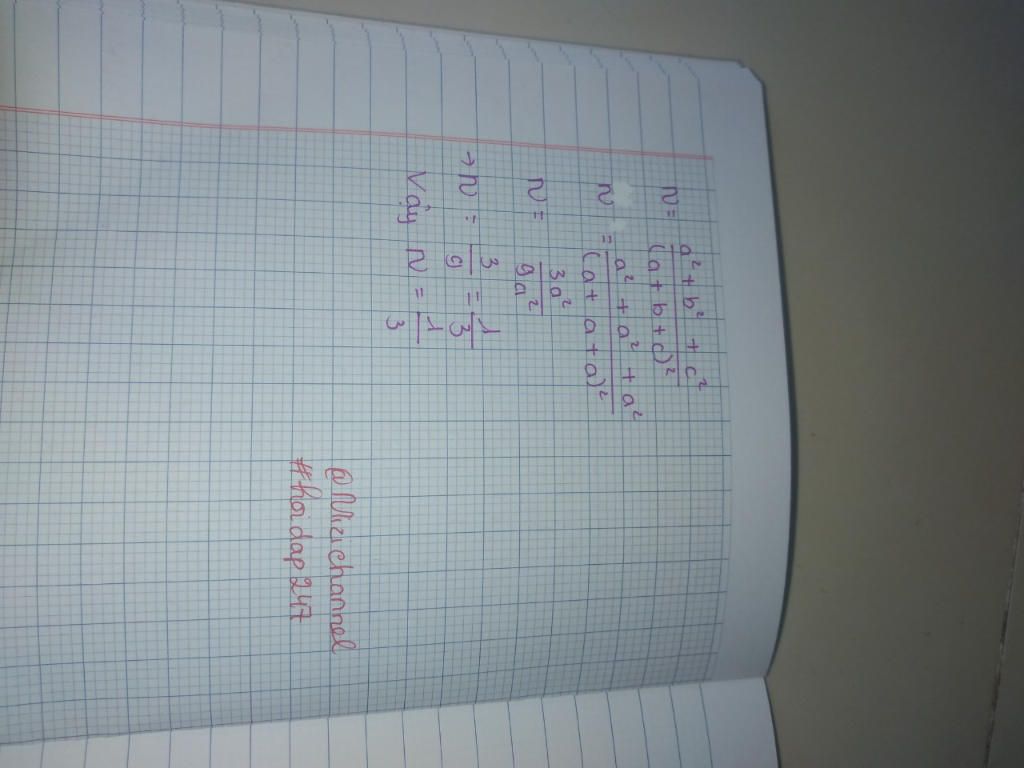 N = a² + b² + c² / (a + b + c)²
N = a² + a² + a² / (a + a + a)²
N = 3a² / 9a²
→ N = 3/9 = 1/3
Vậy N = 1/3
@Nizichannel
#hoidap247